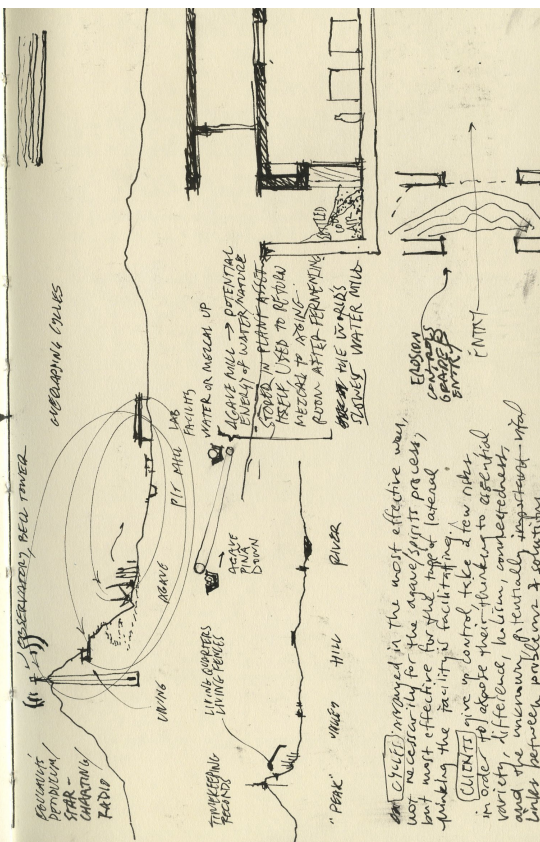 OBSERVATORY, BELL TOWER
OVERLAPPING CYCLES
FOUCAULT'S
PENDULUM/
STAR-
CHARTING/
RADIO
LIVING
AGAVE
PIT MILL
LAB
FACILITY
TIMEKEEPING
RECORDS
LIVING QUARTERS
LIVING FENCES
AGAVE
PINA
DOWN
WATER OR MEZCAL UP
AGAVE MILL → POTENTIAL
ENERGY OF WATER/NATURE
STORED IN PLANT ASSET
ITSELF, USED TO RETURN
MEZCAL TO AGING
ROOM AFTER FERMENTING
THE WORLD'S
SLOWEST WATER MILL
COOL
AIR
"PEAK"
VALLEY
HILL
RIVER
EROSION
CONTROLS
GRADE @
ENTRY
ENTRY
CYCLES arranged in the most effective way,
not necessarily for the agave/spirits process,
but most effective for the type of lateral
thinking the facility is facilitating.
CLIENTS give up control, take a few risks
in order to expose their thinking to essential
variety, difference, holism, connectedness,
and the unknown, potentially important vital
links between problems & solutions